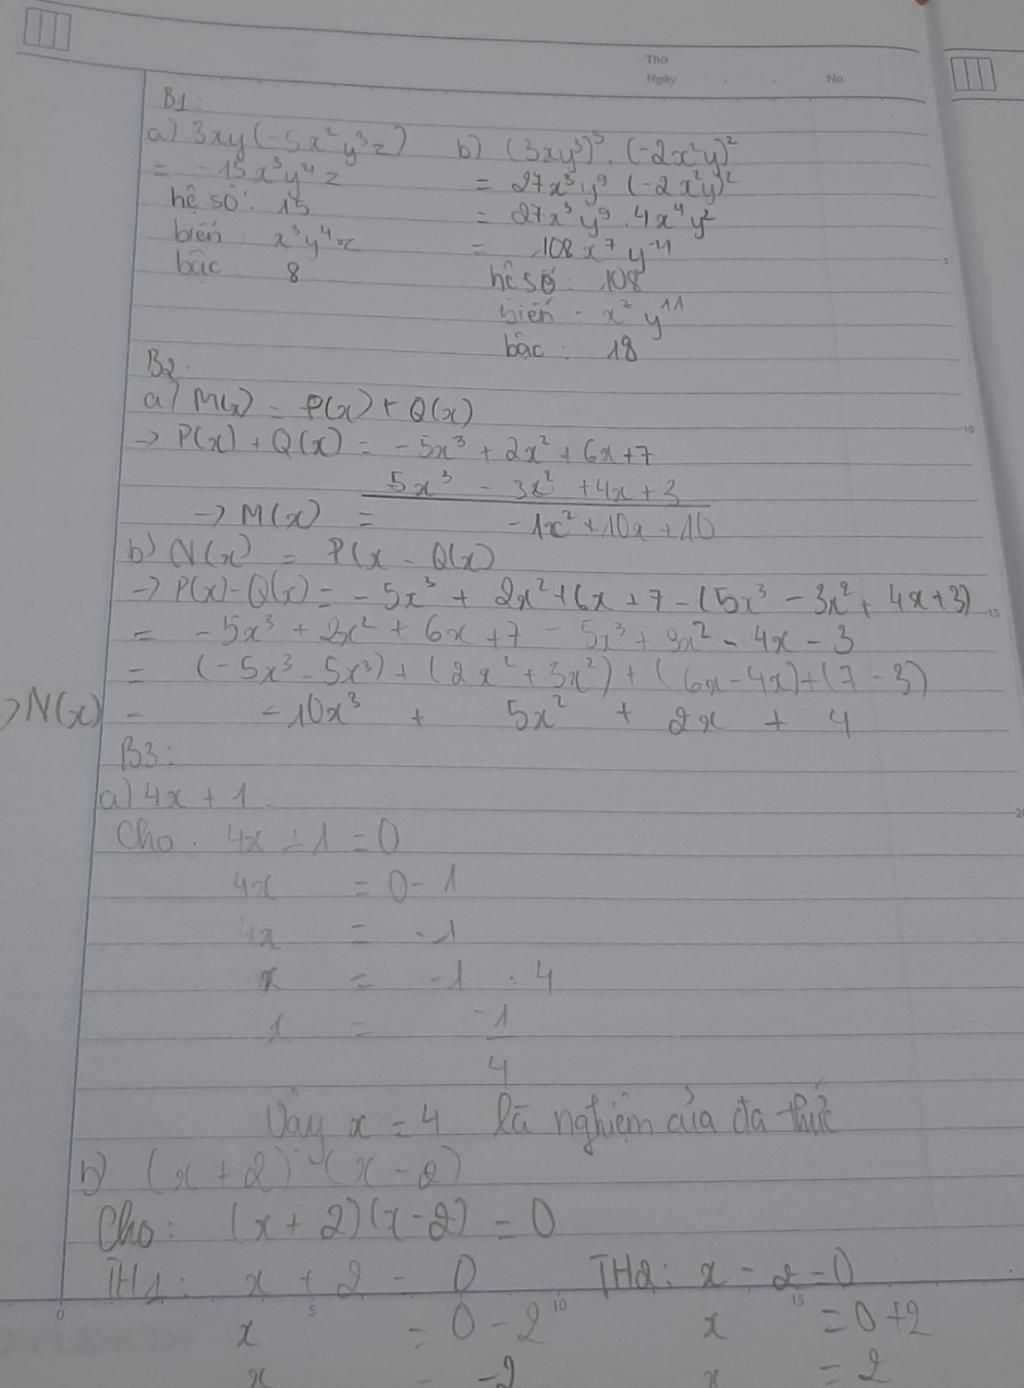 Thứ
Ngày No.
B1:
a) 3xy(-5x²y³z)
= -15x³y⁴z
hệ số: 15
biến: x³y⁴z
bậc: 8
b) (3xy³)³.(-2x²y)²
= 27x³y⁹ (-2x²y)²
= 27x³y⁹.4x⁴y²
= 108x⁷y¹¹
hệ số: 108
biến: x⁷y¹¹
bậc: 18
B2:
a) M(x) = P(x) + Q(x)
→ P(x) + Q(x) = -5x³ + 2x² + 6x + 7
5x³ - 3x² + 4x + 3
→ M(x) = -1x² + 10x + 10
b) N(x) = P(x - Q(x)
→ P(x) - Q(x) = -5x³ + 2x² + 6x + 7 - (5x³ - 3x² + 4x + 3)
= -5x³ + 2x² + 6x + 7 - 5x³ + 3x² - 4x - 3
= (-5x³ - 5x³) + (2x² + 3x²) + (6x - 4x) + (7 - 3)
→ N(x) = -10x³ + 5x² + 2x + 4
B3:
a) 4x + 1
Cho: 4x + 1 = 0
4x = 0 - 1
4x = -1
x = -1 : 4
x = -1/4
Vậy x = 4 là nghiệm của đa thức
b) (x + 2) (x - 2)
Cho: (x + 2)(x - 2) = 0
TH1: x + 2 = 0 TH2: x - 2 = 0
x = 0 - 2 x = 0 + 2
x = -2 x = 2